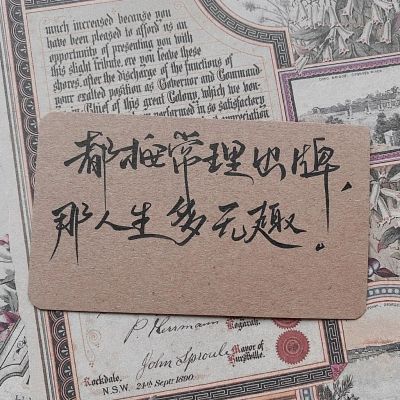 much increased because you
have been pleased to afford us an
opportunity of presenting you with
this slight tribute, ere you leave these
shores, after the discharge of the functions of
your exalted position as Governor and Command-
in-Chief of this great Colony, which we ven-
performed in so satisfactory
appreciation
都按常理出牌,
那人生多无趣。
P. Herrmann
Kogarah.
John Sproule
Mayor of
Hurstville.
Rockdale,
N.S.W. 24th Septr 1890.